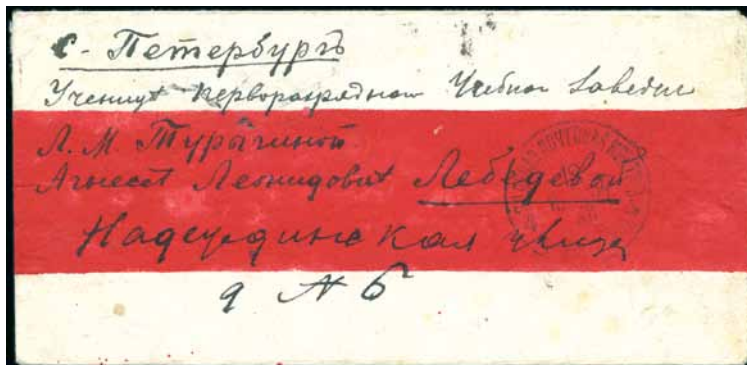 С-Петербургъ
Ученицѣ Перворазрядного Учебног Заведен
Л. М. Турыгиной
Агнессѣ Леонидовнѣ Лебедевой
Надеждинская улица
д № 6